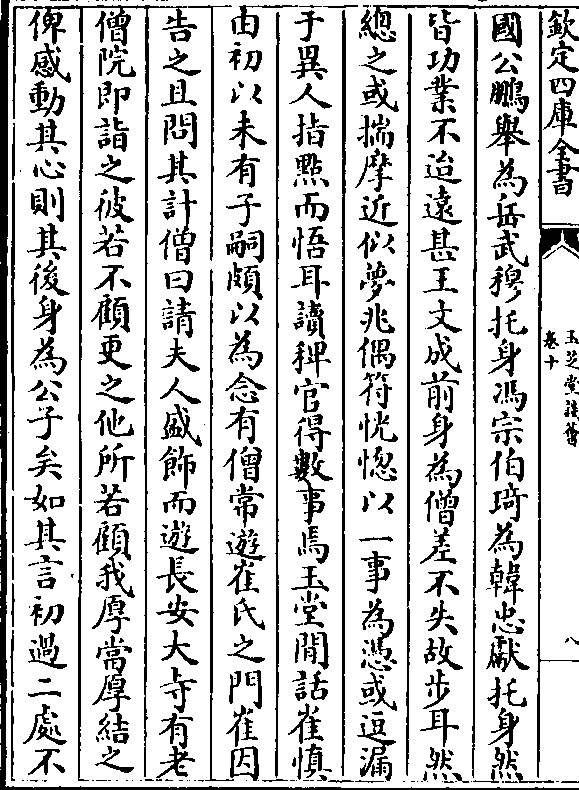 欽定四庫全書
玉芝堂談薈
卷十
八
國公鵬舉為岳武穆托身馮宗伯琦為韓忠獻托身然
皆功業不迨遠甚王文成前身為僧差不失故步耳然
總之或揣摩近似夢兆偶符恍惚以一事為憑或逗漏
于異人指點而悟耳讀稗官得數事焉玉堂閒話崔慎
由初以未有子嗣頗以為念有僧常遊崔氏之門崔因
告之且問其計僧曰請夫人盛飾而遊長安大寺有老
僧院即詣之彼若不顧更之他所若顧我厚當厚結之
俾感動其心則其後身為公子矣如其言初過二處不